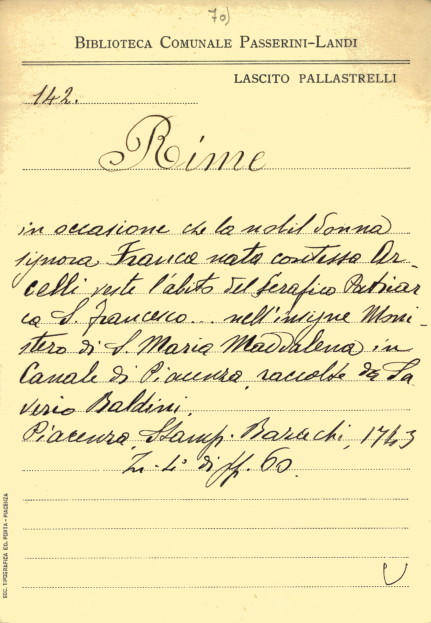 70)
BIBLIOTECA COMUNALE PASSERINI-LANDI
LASCITO PALLASTRELLI
142.
Rime
in occasione che la nobil donna
signora Franca nata contessa Ar-
celli veste l'abito del Serafico Patriar
ca S. Francesco... nell'insigne Moni-
stero di S. Maria Maddalena in
Canale di Piacenza, raccolte da Sa
verio Baldini.
Piacenza, Stamp. Barachi, 1743
In-4° di ff. 60.
SOC. TIPOGRAFICA ED. PORTA - PIACENZA